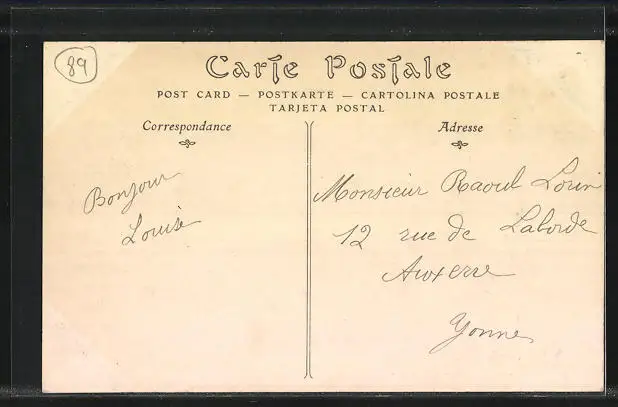 89
Carte Postale
POST CARD — POSTKARTE — CARTOLINA POSTALE
TARJETA POSTAL
Correspondance
Adresse
Bonjour
Louise
Monsieur Raoul Lorin
12 rue de Laborde
Auxerre
Yonne